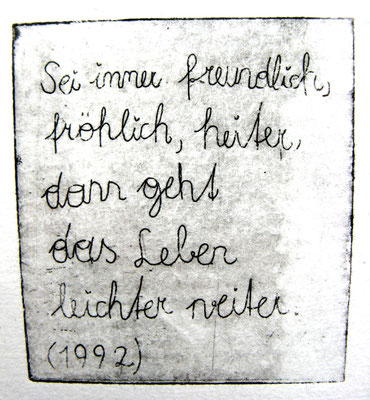 Sei immer freundlich,
fröhlich, heiter,
dann geht
das Leben
leichter weiter.
(1992)